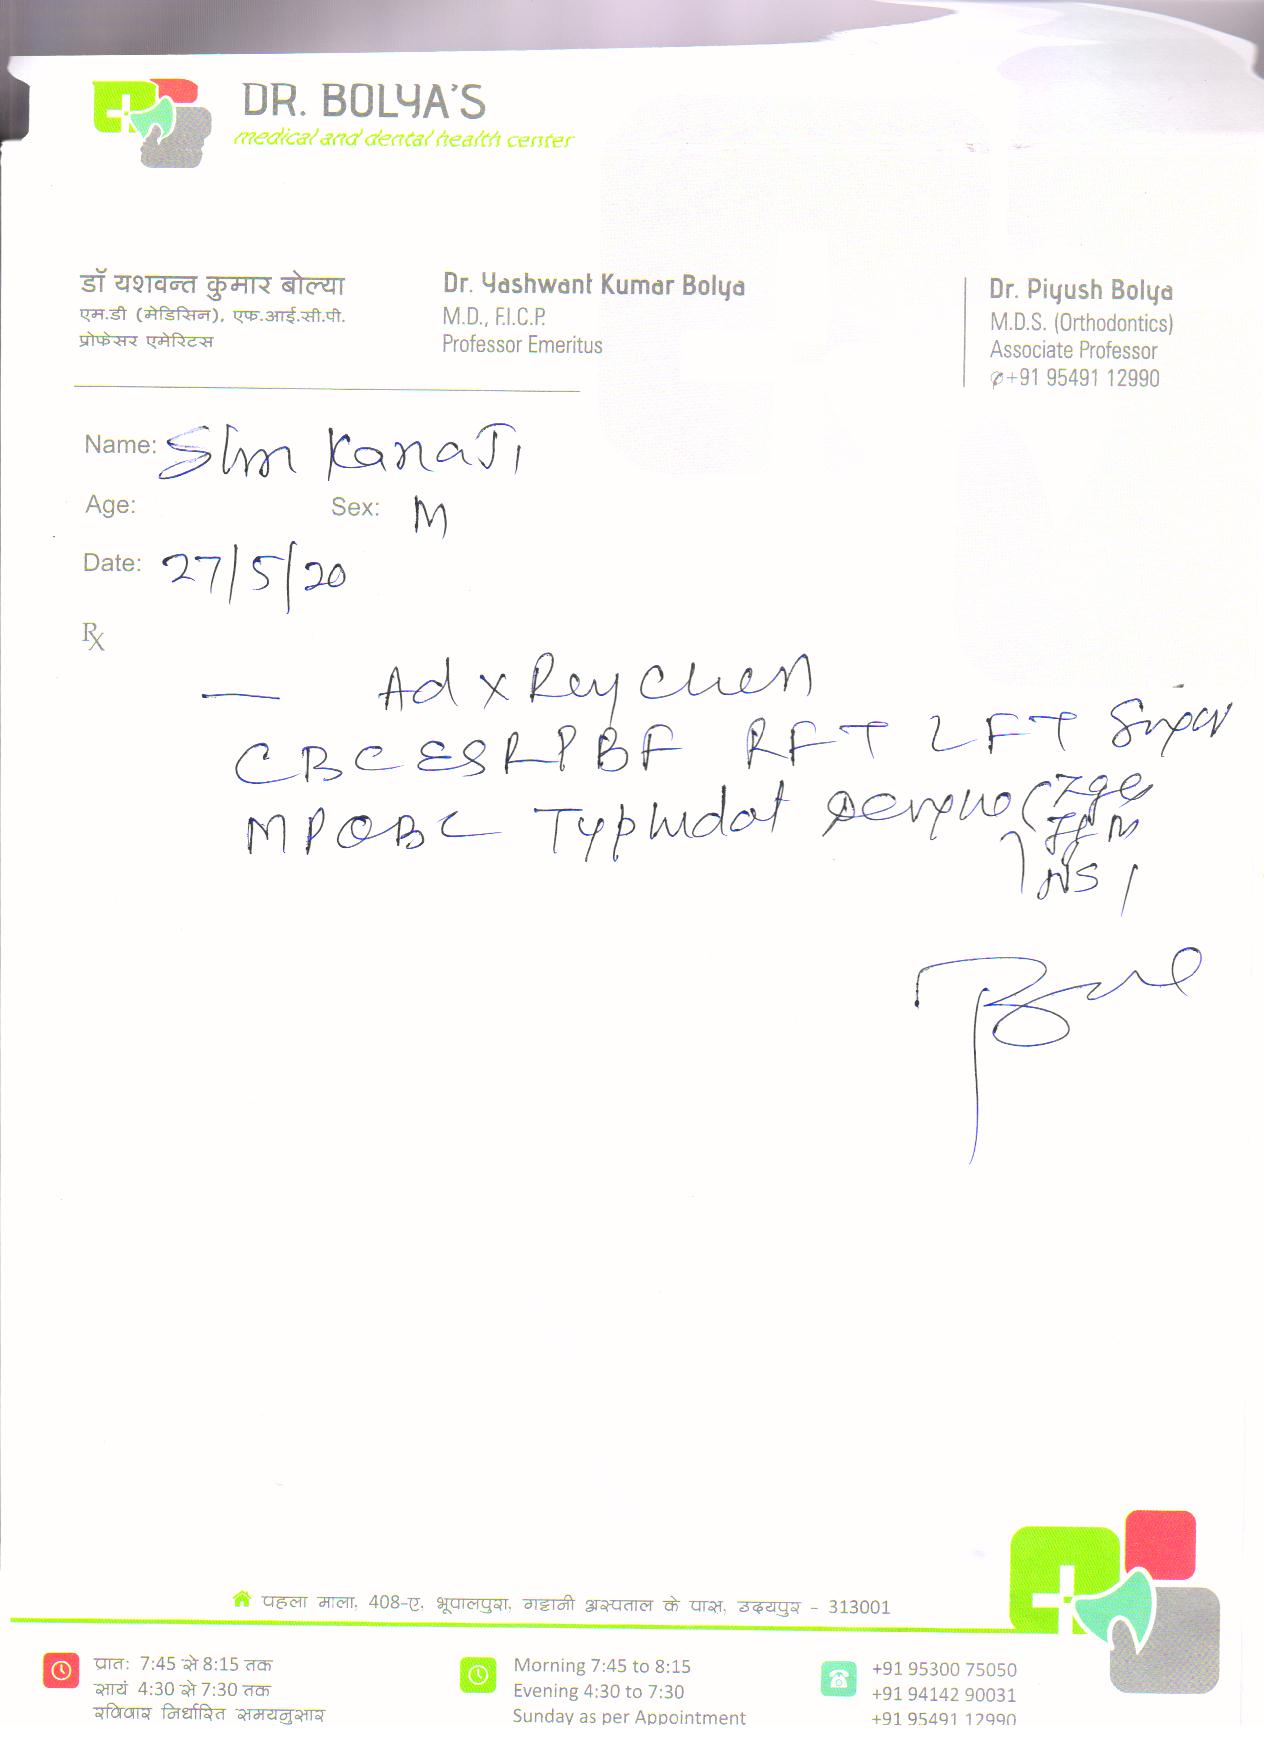 DR. BOLYA'S
medical and dental health center
डॉ यशवन्त कुमार बोल्या
एम.डी (मेडिसिन), एफ.आई.सी.पी.
प्रोफेसर एमेरिटस
Dr. Yashwant Kumar Bolya
M.D., F.I.C.P.
Professor Emeritus
Dr. Piyush Bolya
M.D.S. (Orthodontics)
Associate Professor
+91 95491 12990
Name: Shri KanaJi
Age: Sex: M
Date: 27/5/20
Rx
— Ad X Ray Chest
CBC ESR PBF RFT LFT
MPQBC Typhidot Dengue (IgG
IgM
NS1
पहला माला, 408-ए, भूपालपुरा, गट्टानी अस्पताल के पास, उदयपुर - 313001
प्रात: 7:45 से 8:15 तक
सायं 4:30 से 7:30 तक
रविवार निर्धारित समयनुसार
Morning 7:45 to 8:15
Evening 4:30 to 7:30
Sunday as per Appointment
+91 95300 75050
+91 94142 90031
+91 95491 12990